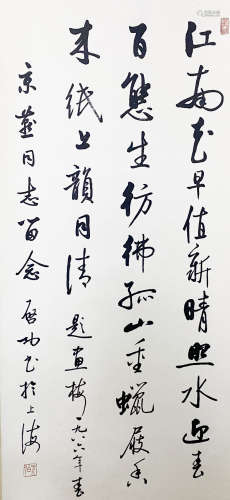 江南花早值新晴照水迎春
百態生彷彿孤山重蠟屐香
来紙上韻同清 題画梅 一九八六年春
京同志留念 启功书於上海